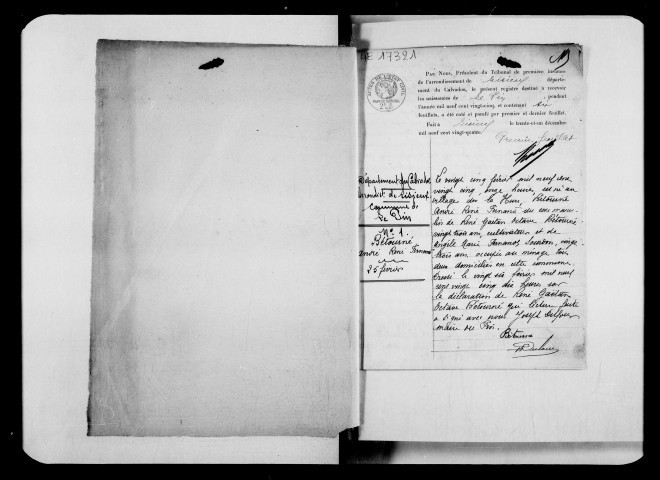 4E 17321
Par Nous, Président du Tribunal de première instance
de l'arrondissement de Lisieux départe-
ment du Calvados, le présent registre destiné à recevoir
les naissances de Le Pin pendant
l'année mil neuf cent vingt-cinq, et contenant six
feuillets, a été coté et paraphé par premier et dernier feuillet.
Fait à Lisieux le trente-et-un décembre
mil neuf cent vingt-quatre.
Premier feuillet
Département du Calvados
Arrondt de Lisieux
Commune de
Le Pin
No 1.
Bétourné
André René Fernand
25 février
Le vingt cinq février mil neuf cent
vingt cinq, onze heures, est né au
village de la Bétourné
André René Fernand du sexe mascu-
lin de René Gaëtan Octave Bétourné
vingt trois ans, cultivateur et de
Angèle Marie vingt
trois ans occupée au ménage tous
deux domiciliés en cette commune
Dressé le vingt six février mil neuf
cent vingt cinq dix heures sur
la déclaration de René Gaëtan
Octave Bétourné qui lecture faite
a signé avec nous Joseph
maire du Pin.
Bétourné